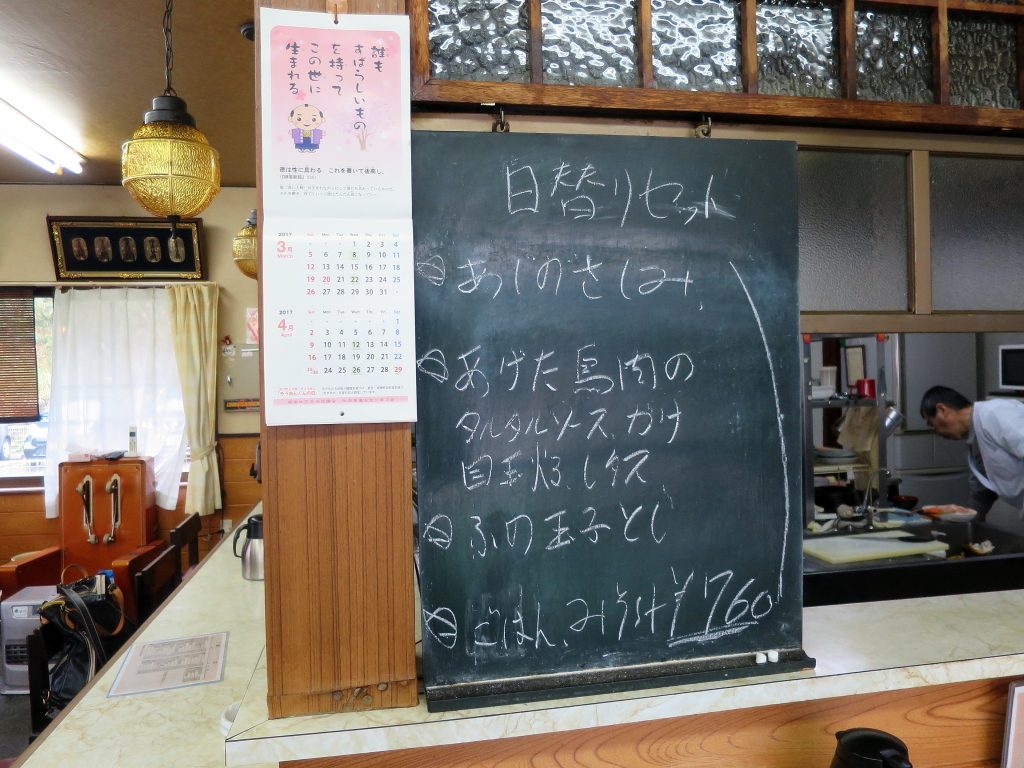 誰も
すばらしいもの
を持って
この世に
生まれる
徳は性に具わる、これを養いて後高し、
2017
3月
March
Sun Mon Tue Wed Thu Fri Sat
1 2 3 4
5 6 7 8 9 10 11
12 13 14 15 16 17 18
19 20 21 22 23 24 25
26 27 28 29 30 31
2017
4月
April
Sun Mon Tue Wed Thu Fri Sat
1
2 3 4 5 6 7 8
9 10 11 12 13 14 15
16 17 18 19 20 21 22
23/30 24 25 26 27 28 29
日替りセット
あじのさしみ、
あげた鳥肉の
タルタルソースかけ
目玉焼、レタス
ふの玉子とじ
ごはん、みそ汁 ¥760